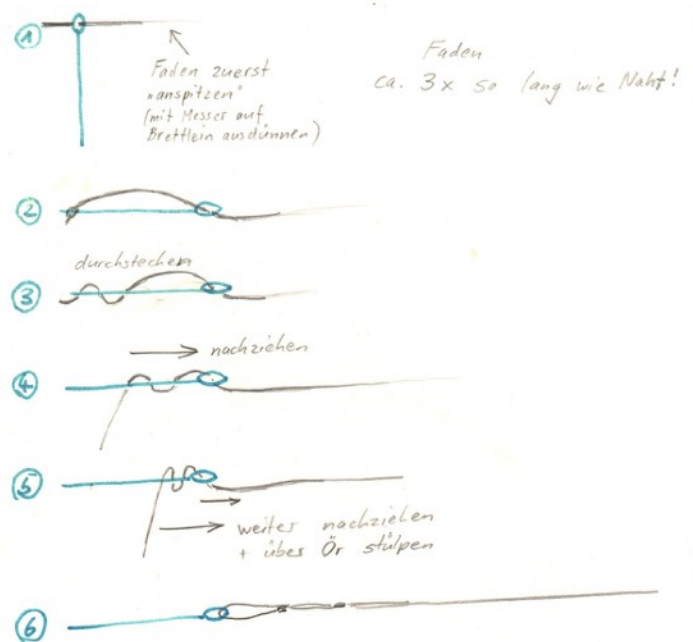 1
Faden zuerst
"anspitzen"
(mit Messer auf
Brettlein ausdünnen)
Faden
ca. 3x so lang wie Naht!
2
durchstechen
3
nachziehen
4
5
weiter nachziehen
+ über Ör stülpen
6